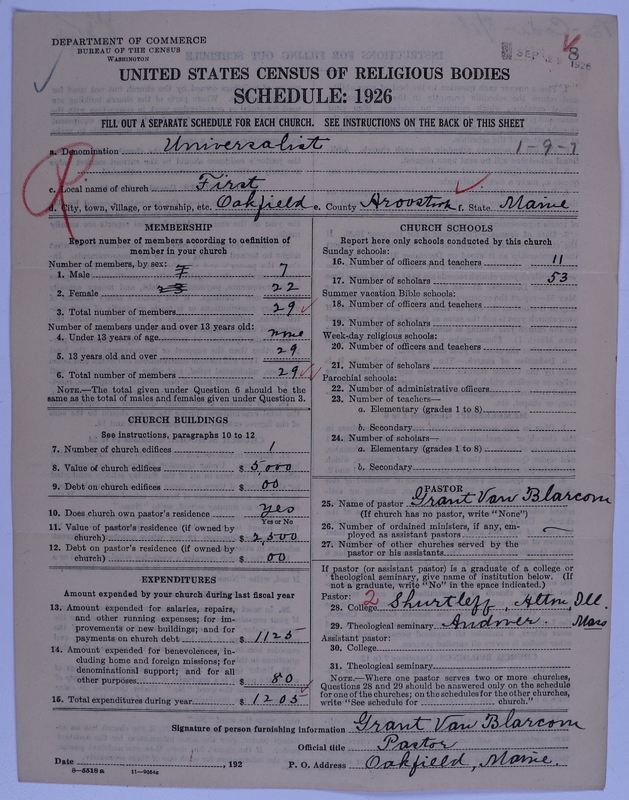 DEPARTMENT OF COMMERCE
BUREAU OF THE CENSUS
WASHINGTON
UNITED STATES CENSUS OF RELIGIOUS BODIES
SCHEDULE: 1926
FILL OUT A SEPARATE SCHEDULE FOR EACH CHURCH. SEE INSTRUCTIONS ON THE BACK OF THIS SHEET
a. Denomination Universalist 1-9-7
c. Local name of church First
d. City, town, village, or township, etc. Oakfield e. County Aroostook f. State Maine
MEMBERSHIP
Report number of members according to definition of
member in your church
Number of members, by sex:
1. Male 7 7
2. Female 23 22
3. Total number of members 29
Number of members under and over 13 years old:
4. Under 13 years of age none
5. 13 years old and over 29
6. Total number of members 29
NOTE.—The total given under Question 6 should be the
same as the total of males and females given under Question 3.
CHURCH BUILDINGS
See instructions, paragraphs 10 to 12
7. Number of church edifices 1
8. Value of church edifices $ 5,000
9. Debt on church edifices $ 00
10. Does church own pastor's residence yes
Yes or No
11. Value of pastor's residence (if owned by
church) $ 2,500
12. Debt on pastor's residence (if owned by
church) $ 00
EXPENDITURES
Amount expended by your church during last fiscal year
13. Amount expended for salaries, repairs,
and other running expenses; for im-
provements or new buildings; and for
payments on church debt $ 1125
14. Amount expended for benevolences, in-
cluding home and foreign missions; for
denominational support; and for all
other purposes $ 80
15. Total expenditures during year $ 1205
CHURCH SCHOOLS
Report here only schools conducted by this church
Sunday schools:
16. Number of officers and teachers 11
17. Number of scholars 53
Summer vacation Bible schools:
18. Number of officers and teachers
19. Number of scholars
Week-day religious schools:
20. Number of officers and teachers
21. Number of scholars
Parochial schools:
22. Number of administrative officers
23. Number of teachers—
a. Elementary (grades 1 to 8)
b. Secondary
24. Number of scholars—
a. Elementary (grades 1 to 8)
b. Secondary
PASTOR
25. Name of pastor Grant Van Blarcom
(If church has no pastor, write "None")
26. Number of ordained ministers, if any, em-
ployed as assistant pastors
27. Number of other churches served by the
pastor or his assistants
If pastor (or assistant pastor) is a graduate of a college or
theological seminary, give name of institution below. (If
not a graduate, write "No" in the space indicated.)
Pastor: 2
28. College Shurtleff, Alton, Ill.
29. Theological seminary Andover. Mass
Assistant pastor:
30. College
31. Theological seminary
NOTE.—Where one pastor serves two or more churches,
Questions 28 and 29 should be answered only on the schedule
for one of the churches; on the schedules for the other churches,
write "See schedule for church."
Signature of person furnishing information Grant Van Blarcom
Official title Pastor
Date , 192 P. O. Address Oakfield, Maine.
8—5518 a 11—9054a